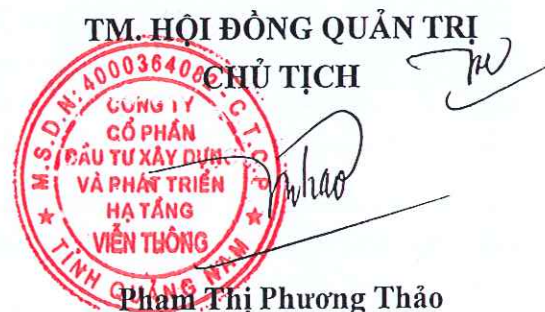 TM. HỘI ĐỒNG QUẢN TRỊ
CHỦ TỊCH
M.S.D.N: 4000364086 - C.T.C.P
CÔNG TY
CỔ PHẦN
ĐẦU TƯ XÂY DỰNG
VÀ PHÁT TRIỂN
HẠ TẦNG
VIỄN THÔNG
TỈNH QUẢNG NAM
Phạm Thị Phương Thảo